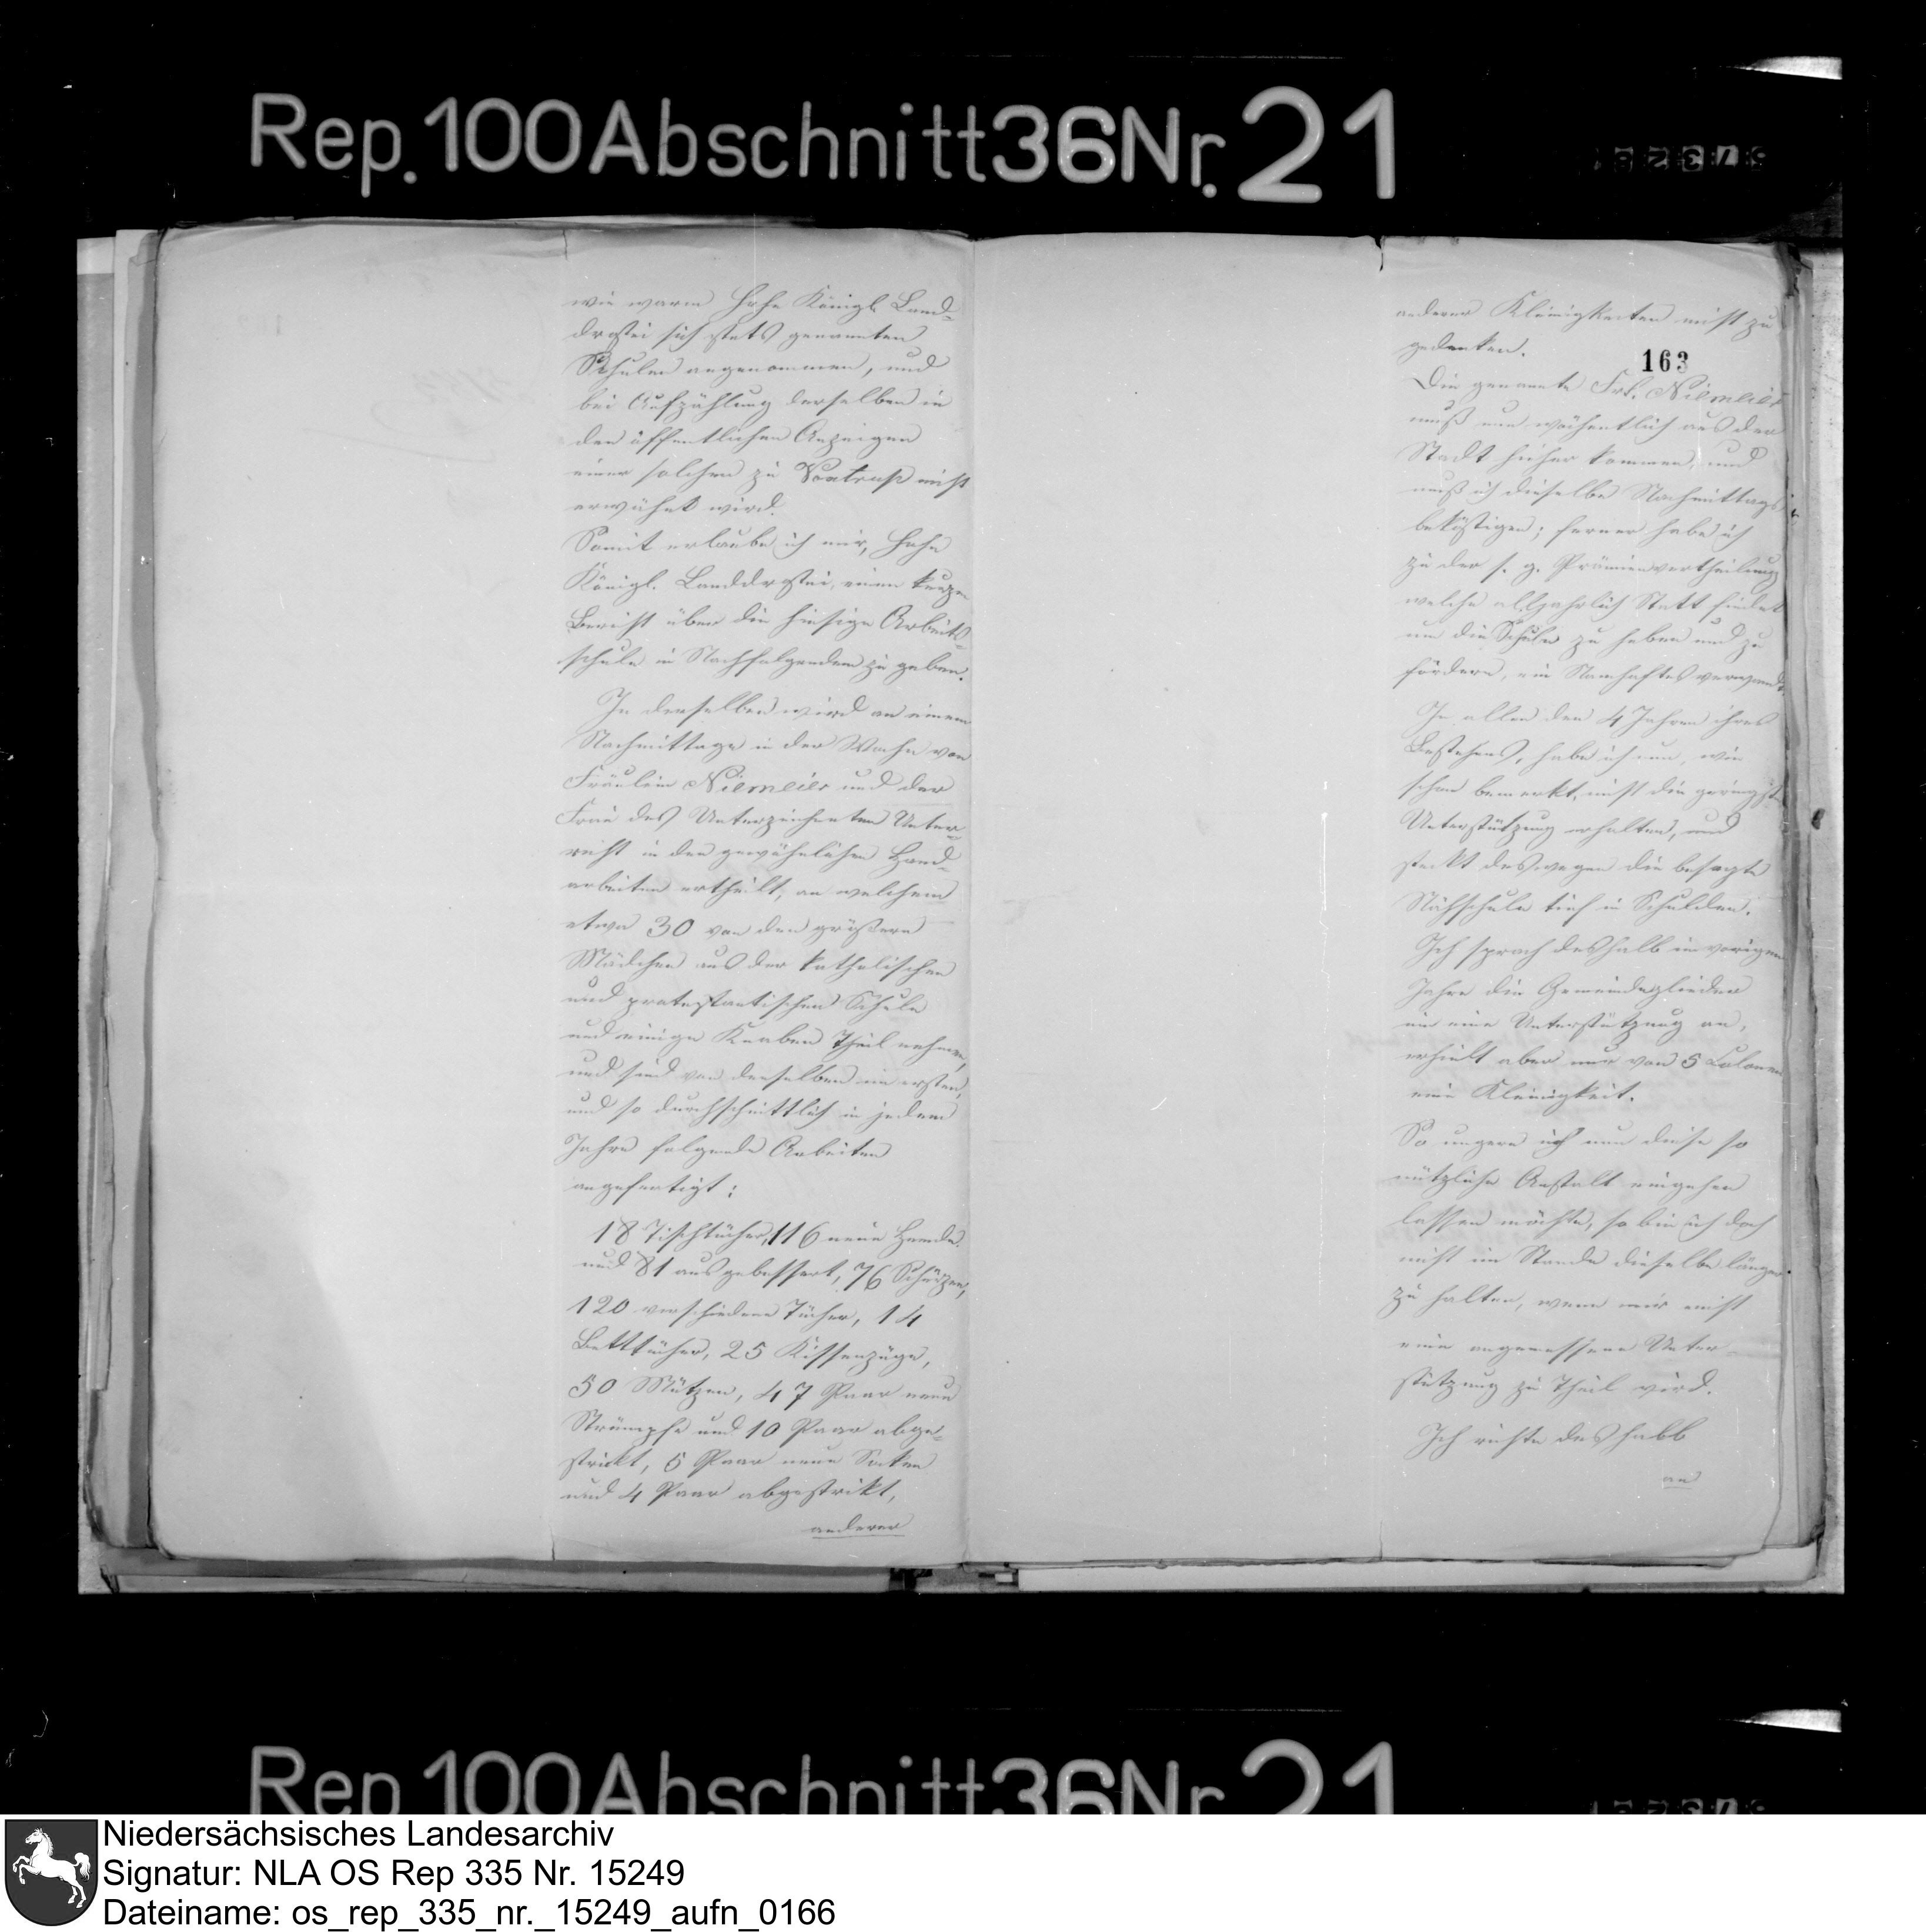 Rep. 100 Abschnitt 36 Nr. 21
wie warm Hohe Königl. Land-
drostei sich stets genannten
Schulen angenommen, und
bei Aufzählung derselben in
den öffentlichen Anzeigen
einer solchen zu Voxtrup nicht
erwähnt wird.
Somit erlaube ich mir, Hohe
Königl. Landdrostei, einen kurzen
Bericht über die hiesige Arbeits-
schule in Nachfolgendem zu geben.
In derselben wird an einem
Nachmittage in der Woche von
Fräulein Niemeier und der
Frau des Unterzeichneten Unter-
richt in den gewöhnlichen Hand-
arbeiten ertheilt, an welchem
etwa 30 von den größern
Mädchen aus der katholischen
und protestantischen Schule
und einige Knaben Theil nehmen,
und sind von denselben im ersten,
und so durchschnittlich in jedem
Jahre folgende Arbeiten
angefertigt:
18 Tischtücher, 116 neue Hemde
und 81 ausgebessert, 76 Schürzen,
120 verschiedene Tücher, 14
Betttücher, 25 Kissenzüge,
50 Mützen, 47 Paar neue
Strümpfe und 10 Paar abge-
strickt, 6 Paar neue Socken
und 4 Paar abgestrikt,
anderer
anderer Kleinigkeiten nicht zu
gedenken.
163
Die genannte Frl. Niemeier
muß nun wöchentlich aus der
Stadt hieher kommen, und
muß ich dieselbe Nachmittags
beköstigen; ferner habe ich
zu der s. g. Prämienvertheilung
welche alljährlich Statt findet
um die Schule zu heben und zu
fördern, ein Namhaftes verwandt.
In allen den 4 Jahren ihres
Bestehens, habe ich nun, wie
schon bemerkt, nicht die geringste
Unterstützung erhalten, und
steckt deswegen die besagte
Nähschule tief in Schulden.
Ich sprach deshalb im vorigen
Jahre die Gemeindeglieder
um eine Unterstützung an,
erhielt aber nur von 5 Colonen
eine Kleinigkeit.
So ungern ich nun diese so
nützliche Anstalt eingehen
lassen möchte, so bin ich doch
nicht im Stande dieselbe länger
zu halten, wenn mir nicht
eine angemessene Unter-
stützung zu Theil wird.
Ich richte deshalb
an
Rep. 100 Abschnitt 36 Nr. 21
Niedersächsisches Landesarchiv
Signatur: NLA OS Rep 335 Nr. 15249
Dateiname: os_rep_335_nr._15249_aufn_0166